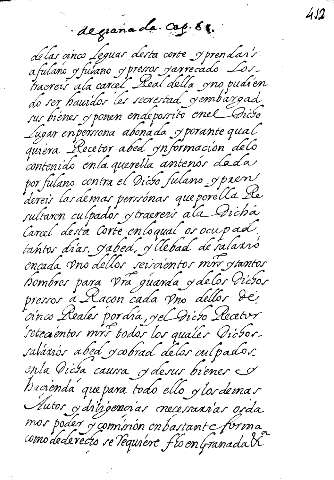 de granada. Cap. 61. 412
de las cinco leguas desta corte y prendais
a fulano y fulano y pressos y a rrecado los
traereis a la carcel Real della y no pudien
do ser havidos les secrestad y embargad
sus bienes y ponen en deposito en el Dicho
Lugar en persona abonada y por ante qual
quiera Recetor abed ynformacion de lo
contenido en la querella ante nos dada
por fulano contra el Dicho fulano y pren
dereis las demas personas que por ella Re
sultaren culpados y traereis a la Dicha
Carcel desta Corte en lo qual os ocupad
tantos dias, y abed, y llebad de salario
en cada Uno dellos seiscientos mrs y tantos
hombres para Vra guarda y de los Dichos
pressos a Racon cada Uno dellos de
cinco Reales por dia, y el Dicho Recetor
setecientos mrs todos los quales Dichos
salarios abed y cobrad de los culpados
en la Dicha caussa y de sus bienes y
hacienda que para todo ello y los demas
Autos y diligencias necesarias os da
mos poder y comision en bastante forma
como de derecho se Requiere fho en Granada &a